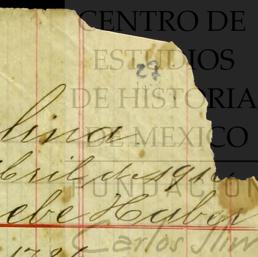 CENTRO DE
ESTUDIOS
DE HISTORIA
DE MEXICO
FUNDACION
Carlos Slim
29
lina
Abril de 191
ebe Haber